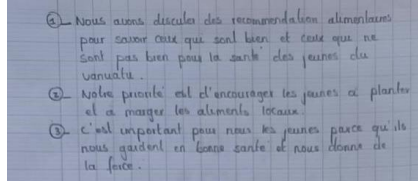 ① Nous avons discuter des recommendation alimentaires
pour savoir ceux qui sont bien et ceux que ne
sont pas bien pour la santé des jeunes du
vanuatu.
② Notre priorité est d'encourager les jeunes a planter
et a manger les aliments locaux.
③ C'est important pour nous les jeunes parce qu'ils
nous gardent en bonne santé et nous donne de
la force.